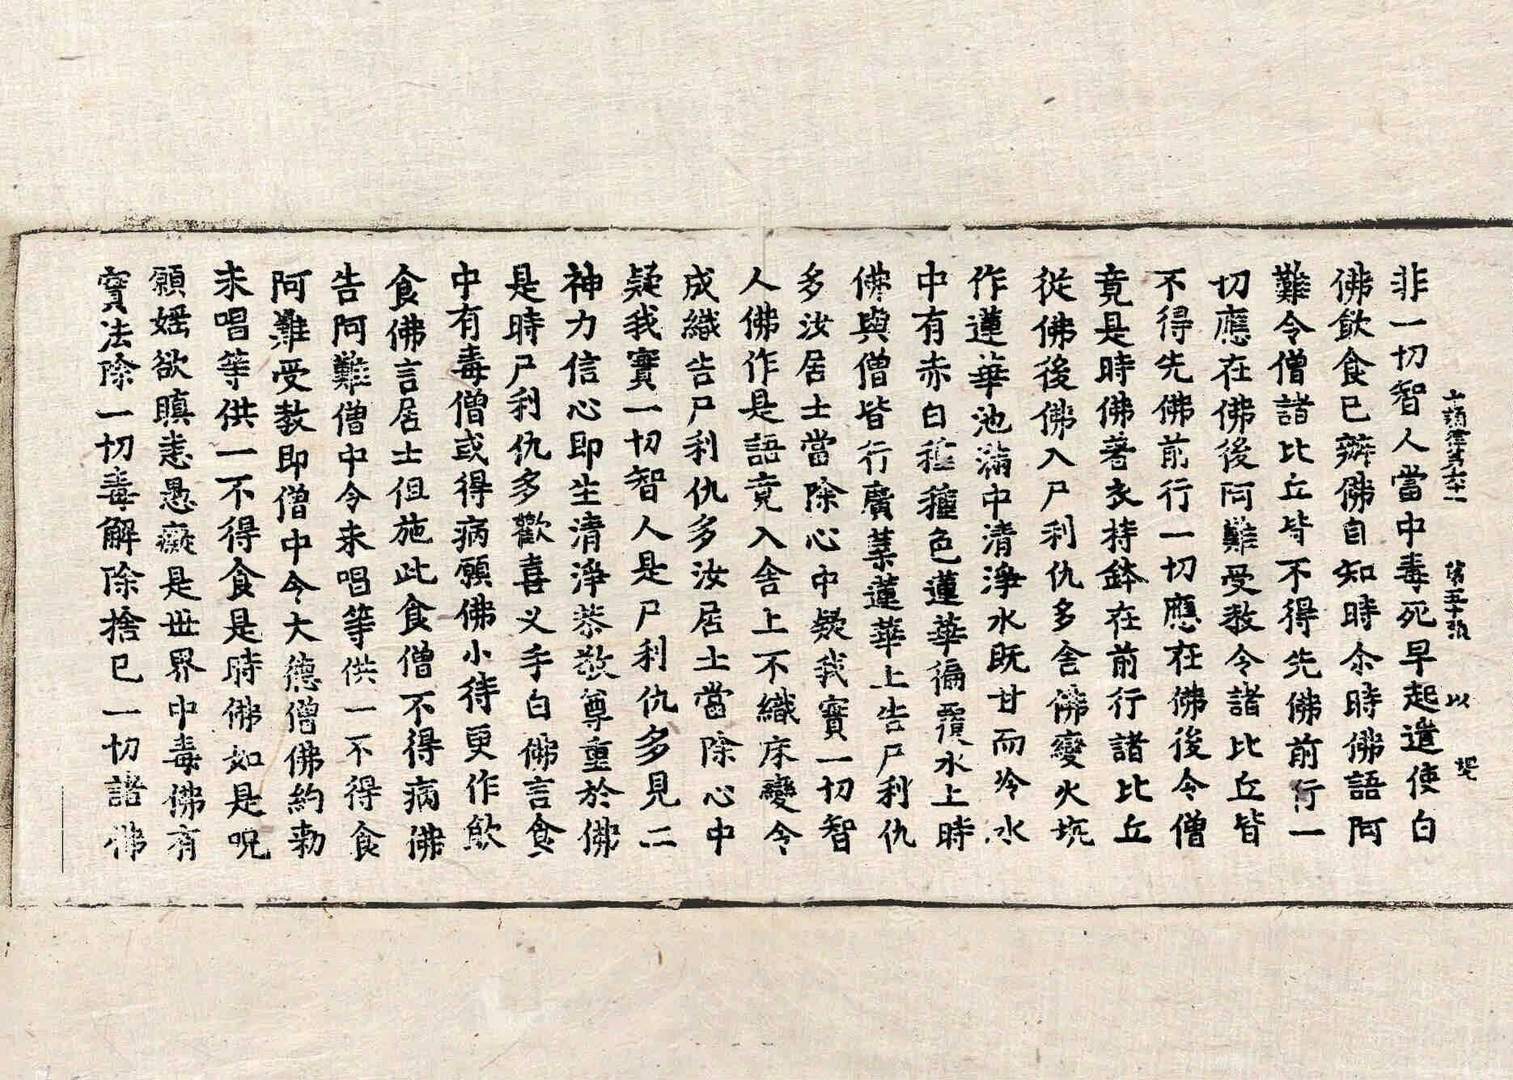 非一切智人當中毒死早起遣使白
佛飲食已辦佛自知時尒時佛語阿
難令僧諸比丘皆不得先佛前行一
切應在佛後阿難受教令諸比丘皆
不得先佛前行一切應在佛後令僧
竟是時佛著衣持鉢在前行諸比丘
從佛後佛入尸利仇多舍佛變火坑
作蓮華池滿中清淨水既甘而冷水
中有赤白種種色蓮華徧覆水上時
佛與僧皆行廣葉蓮華上告尸利仇
多汝居士當除心中疑我實一切智
人佛作是語竟入舍上不織床變令
成織告尸利仇多汝居士當除心中
疑我實一切智人是尸利仇多見二
神力信心即生清淨恭敬尊重於佛
是時尸利仇多歡喜叉手白佛言食
中有毒僧或得病願佛小待更作飲
食佛言居士但施此食僧不得病佛
告阿難僧中令未唱等供一不得食
阿難受教即僧中令大德僧佛約勅
未唱等供一不得食是時佛如是呪
願婬欲瞋恚愚癡是世界中毒佛有
寶法除一切毒解除捨已一切諸佛